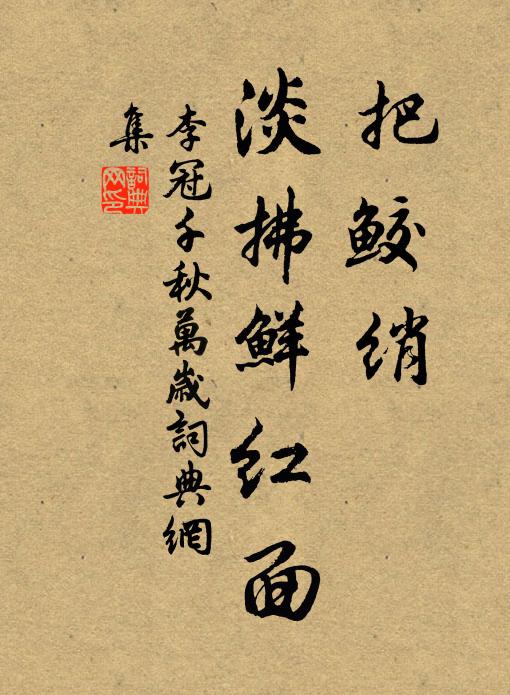 把鲛绡
淡拂鲜红面
李冠千秋萬歲詞典網
集
詞典网印